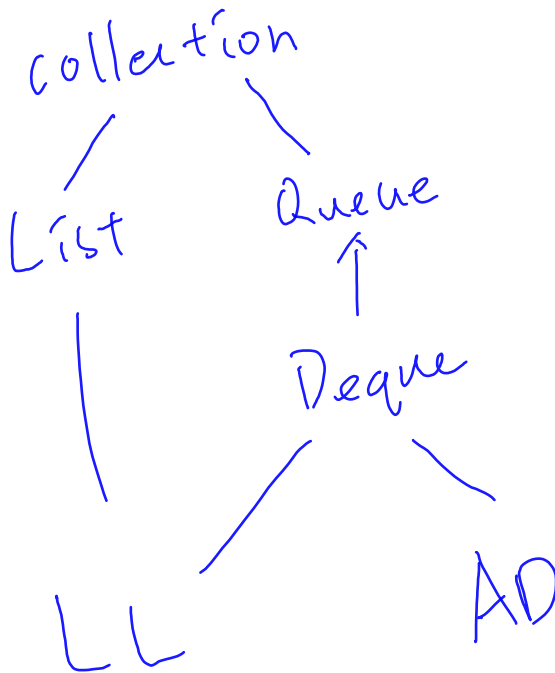 collection
List Queue
Deque
LL AD